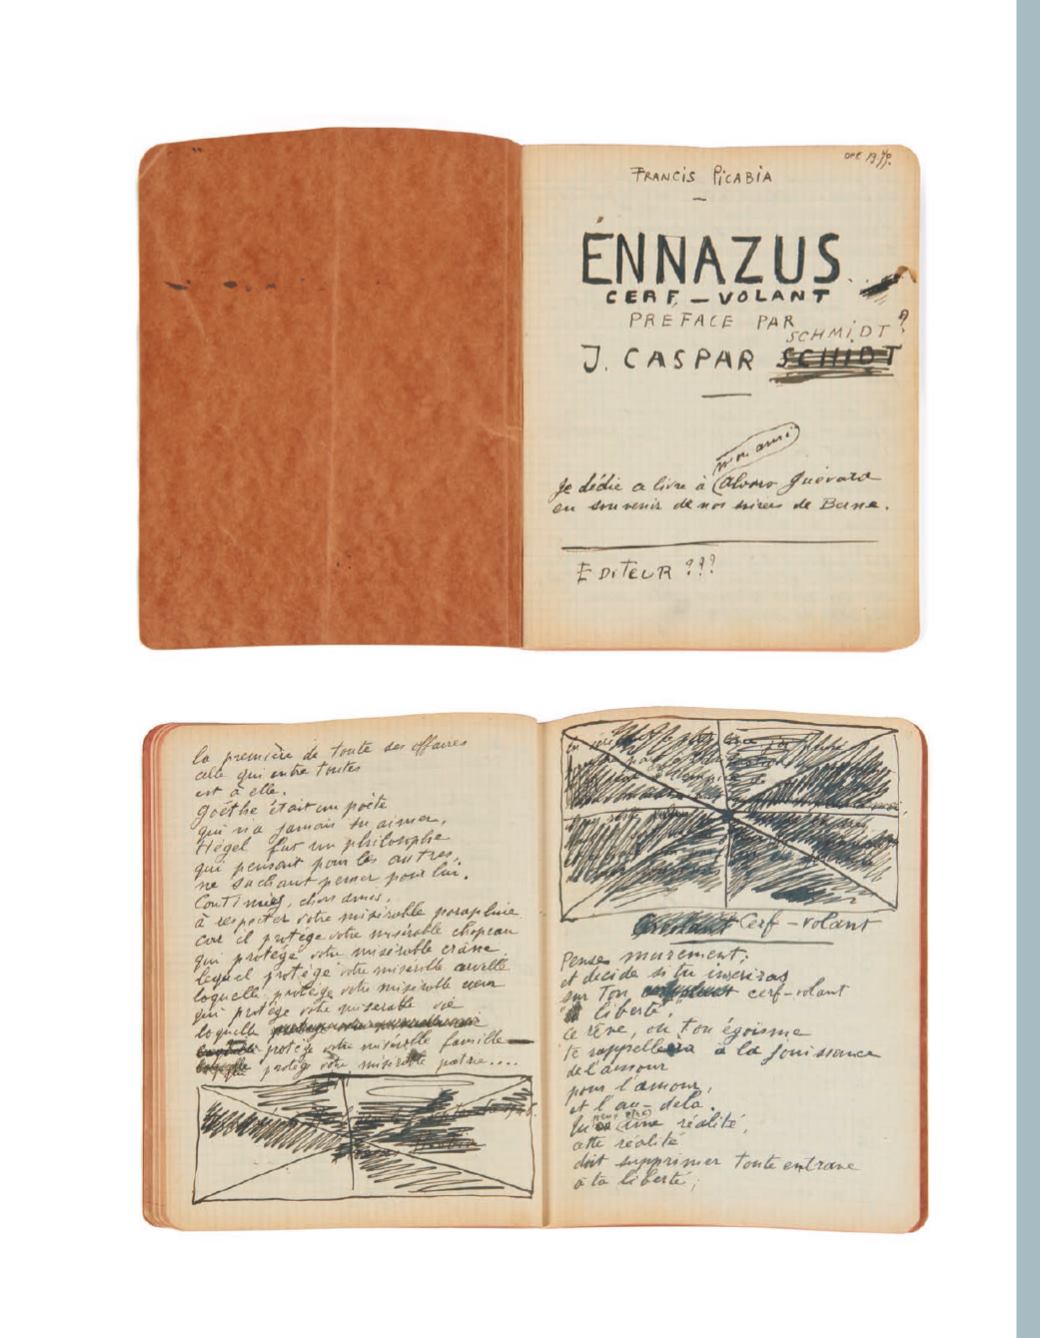 FRANCIS PICABIA
ÉNNAZUS
CERF-VOLANT
PREFACE PAR
SCHMIDT ?
J. CASPAR SCHIDT
mon ami
Je dédie ce livre à Alvaro Guévara
en souvenir de nos soirées de Berne.
EDITEUR ???
la première de toute ses affaires
celle qui entre toutes
est à elle.
Goëthe était un poète
qui n'a jamais su aimer,
Hégel fut un philosophe
qui pensait pour les autres,
ne sachant penser pour lui.
Continuez, chers amis,
à respecter votre misérable parapluie
car il protége votre misérable chapeau
qui protége votre misérable crâne
lequel protége votre misérable cervelle
laquelle protége votre misérable cœur
qui protége votre misérable vie
laquelle
protége votre misérable famille
protége votre misérable patrie....
Cerf-volant
Pense murement,
et décide si tu inscriras
sur ton cerf-volant
liberté,
ce rêve, ou ton égoïsme
te rappellera à la jouissance
de l'amour
pour l'amour,
et l'au-dela.
une réalité,
cette réalité
doit supprimer toute entrave
à ta liberté;